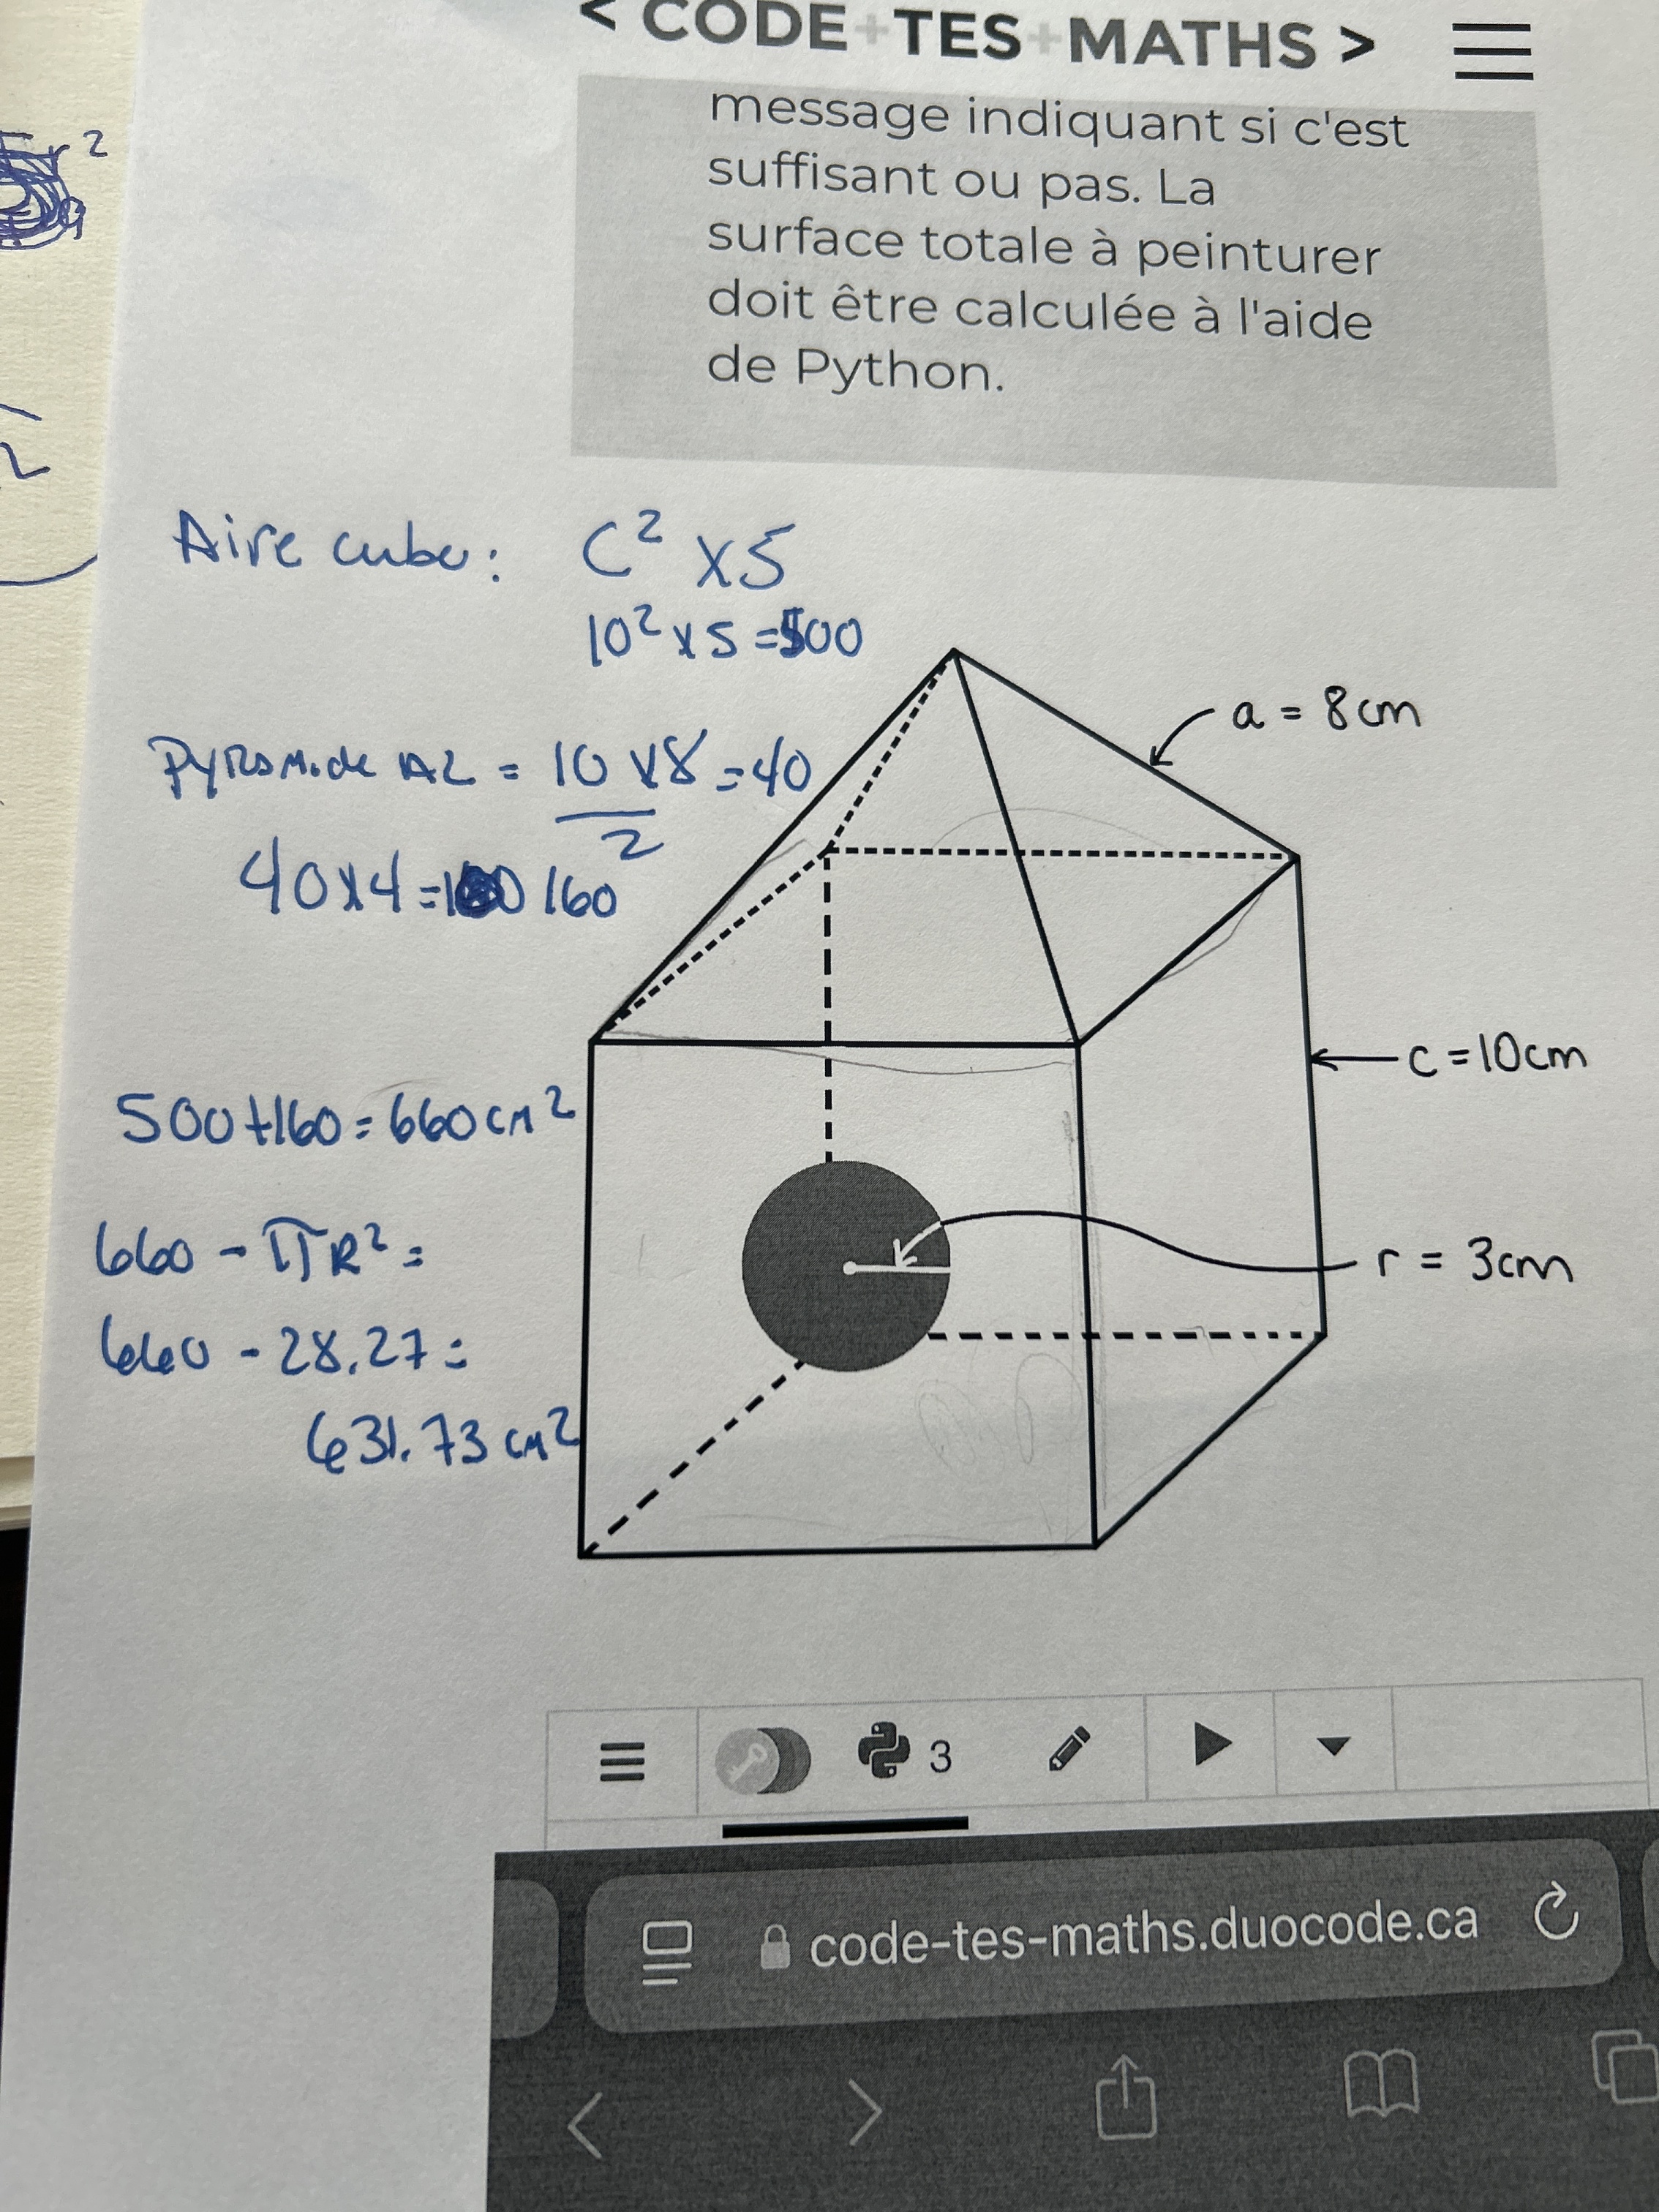 < CODE+TES+MATHS >
message indiquant si c'est
suffisant ou pas. La
surface totale à peinturer
doit être calculée à l'aide
de Python.
r²
2
Aire cube: C² x5
10² x 5 = 500
a = 8cm
Pyramide AL = 10 x 8 = 40
2
40x4 = 160
c = 10cm
500+160 = 660 cm²
660 - πR² =
r = 3cm
660 - 28.27 =
631.73 cm²
3
code-tes-maths.duocode.ca